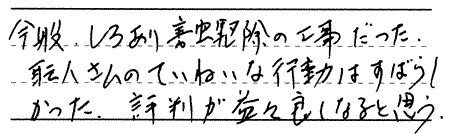 今般、しろあり害虫駆除の工事だった。
職人さんのていねいな行動はすばらし
かった。評判が益々良くなると思う。